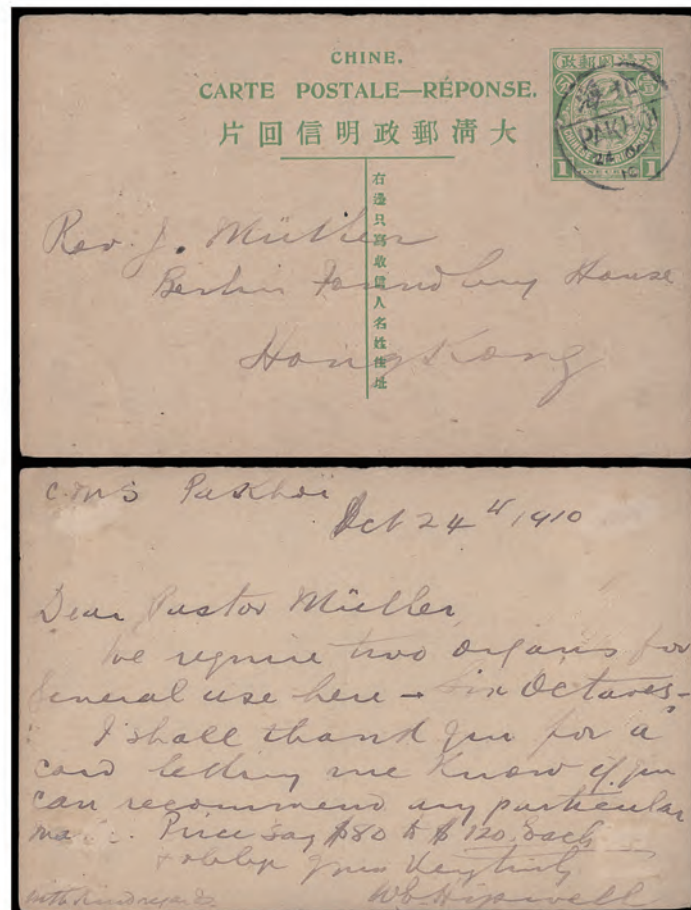 CHINE.
CARTE POSTALE—RÉPONSE.
大清郵政明信回片
右邊只寫收信人名姓住址
大清國郵政
1 1
PAKHOI
24
10
Rev. J. Müller
Berlin Foundling House
HongKong
C.M.S Pakhoi
Oct 24th 1910
Dear Pastor Müller
We require two organs for
general use here - Six Octaves -
I shall thank you for a
card letting me know if you
can recommend any particular
Price say $80 to $120 each
yours very truly
with kind regards. W.E. Hipwell